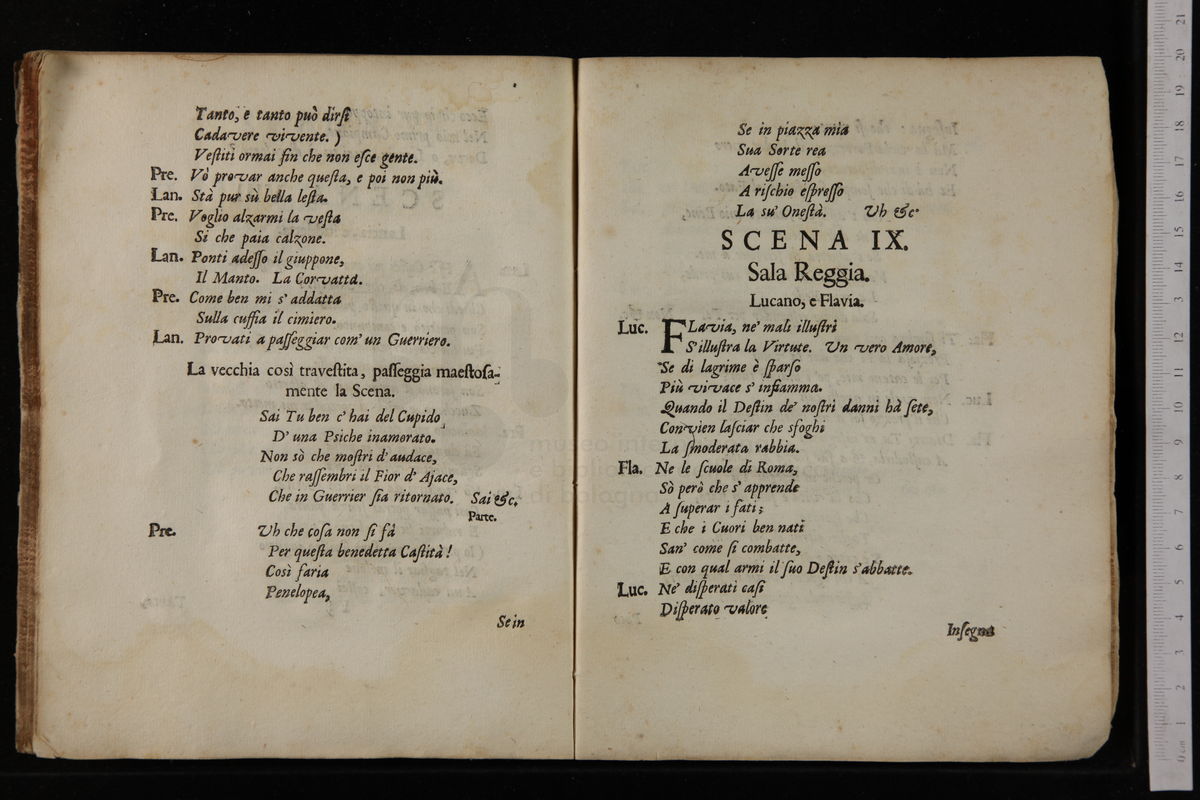 Tanto, e tanto può dirſi
Cadavere vivente. )
Veſtiti ormai fin che non eſce gente.
Pre. Vò provar anche queſta, e poi non più.
Lan. Stà pur sù bella leſta.
Pre. Voglio alzarmi la veſta
Si che paia calzone.
Lan. Ponti adeſſo il giuppone,
Il Manto. La Corvatta.
Pre. Come ben mi s' addatta
Sulla cuffia il cimiero.
Lan. Provati a paſſeggiar com' un Guerriero.
La vecchia così traveſtita, paſſeggia maeſtoſa-
mente la Scena.
Sai Tu ben c' hai del Cupido,
D' una Psiche inamorato.
Non sò che moſtri d' audace,
Che raſſembri il Fior d' Ajace,
Che in Guerrier ſia ritornato. Sai &c.
Parte.
Pre. Uh che coſa non ſi fà
Per queſta benedetta Caſtità !
Così faria
Penelopea,
Se in
Se in piazza mia
Sua Sorte rea
Aveſſe meſſo
A riſchio eſpreſſo
La su' Oneſtà. Uh &c.
SCENA IX.
Sala Reggia.
Lucano, e Flavia.
Luc. FLavia, ne' mali illuſtri
S'illuſtra la Virtute. Un vero Amore,
Se di lagrime è ſparſo
Più vivace s' infiamma.
Quando il Deſtin de' noſtri danni hà ſete,
Convien laſciar che sfoghi
La ſmoderata rabbia.
Fla. Ne le ſcuole di Roma,
Sò però che s' apprende
A ſuperar i fati;
E che i Cuori ben nati
San' come ſi combatte,
E con qual armi il ſuo Deſtin s'abbatte.
Luc. Ne' diſperati caſi
Diſperato valore
Inſegna